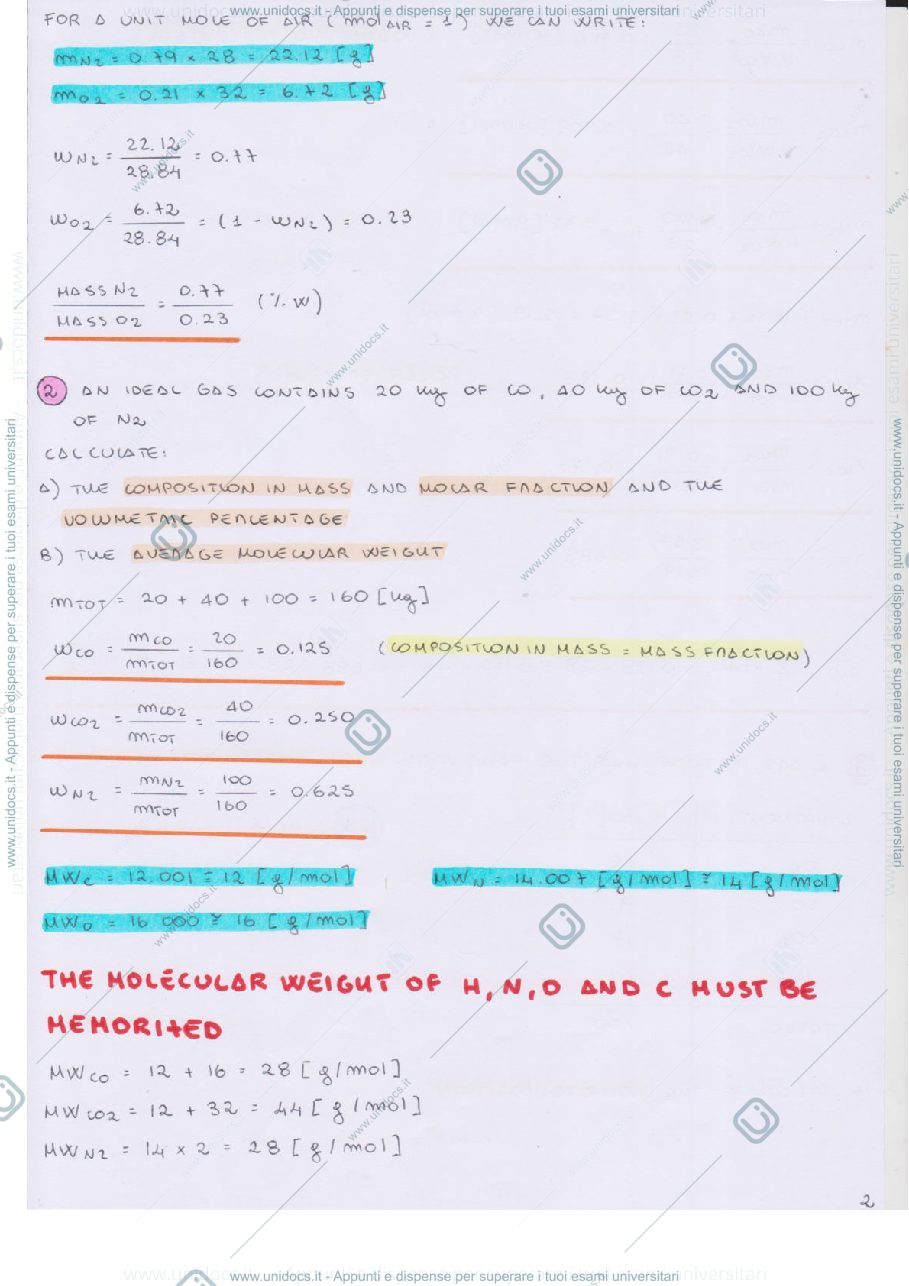 www.unidocs.it - Appunti e dispense per superare i tuoi esami universitari
FOR A UNIT MOLE OF AIR (mol AIR = 1) WE CAN WRITE:
mN2 = 0.79 x 28 = 22.12 [g]
mO2 = 0.21 x 32 = 6.72 [g]
wN2 = 22.12 / 28.84 = 0.77
wO2 = 6.72 / 28.84 = (1 - wN2) = 0.23
MASS N2 / MASS O2 = 0.77 / 0.23 (% w)
2 AN IDEAL GAS CONTAINS 20 kg OF CO, 40 kg OF CO2 AND 100 kg
OF N2
CALCULATE:
A) THE COMPOSITION IN MASS AND MOLAR FRACTION AND THE
VOLUMETRIC PERCENTAGE
B) THE AVERAGE MOLECULAR WEIGHT
mTOT = 20 + 40 + 100 = 160 [kg]
wCO = mCO / mTOT = 20 / 160 = 0.125 (COMPOSITION IN MASS = MASS FRACTION)
wCO2 = mCO2 / mTOT = 40 / 160 = 0.250
wN2 = mN2 / mTOT = 100 / 160 = 0.625
MWC = 12.001 ≅ 12 [g/mol] MWN = 14.007 [g/mol] ≅ 14 [g/mol]
MWO = 16.000 ≅ 16 [g/mol]
THE MOLECULAR WEIGHT OF H, N, O AND C MUST BE
MEMORIZED
MWCO = 12 + 16 = 28 [g/mol]
MWCO2 = 12 + 32 = 44 [g/mol]
MWN2 = 14 x 2 = 28 [g/mol]
2
www.unidocs.it - Appunti e dispense per superare i tuoi esami universitari
www.unidocs.it - Appunti e dispense per superare i tuoi esami universitari
www.unidocs.it - Appunti e dispense per superare i tuoi esami universitari